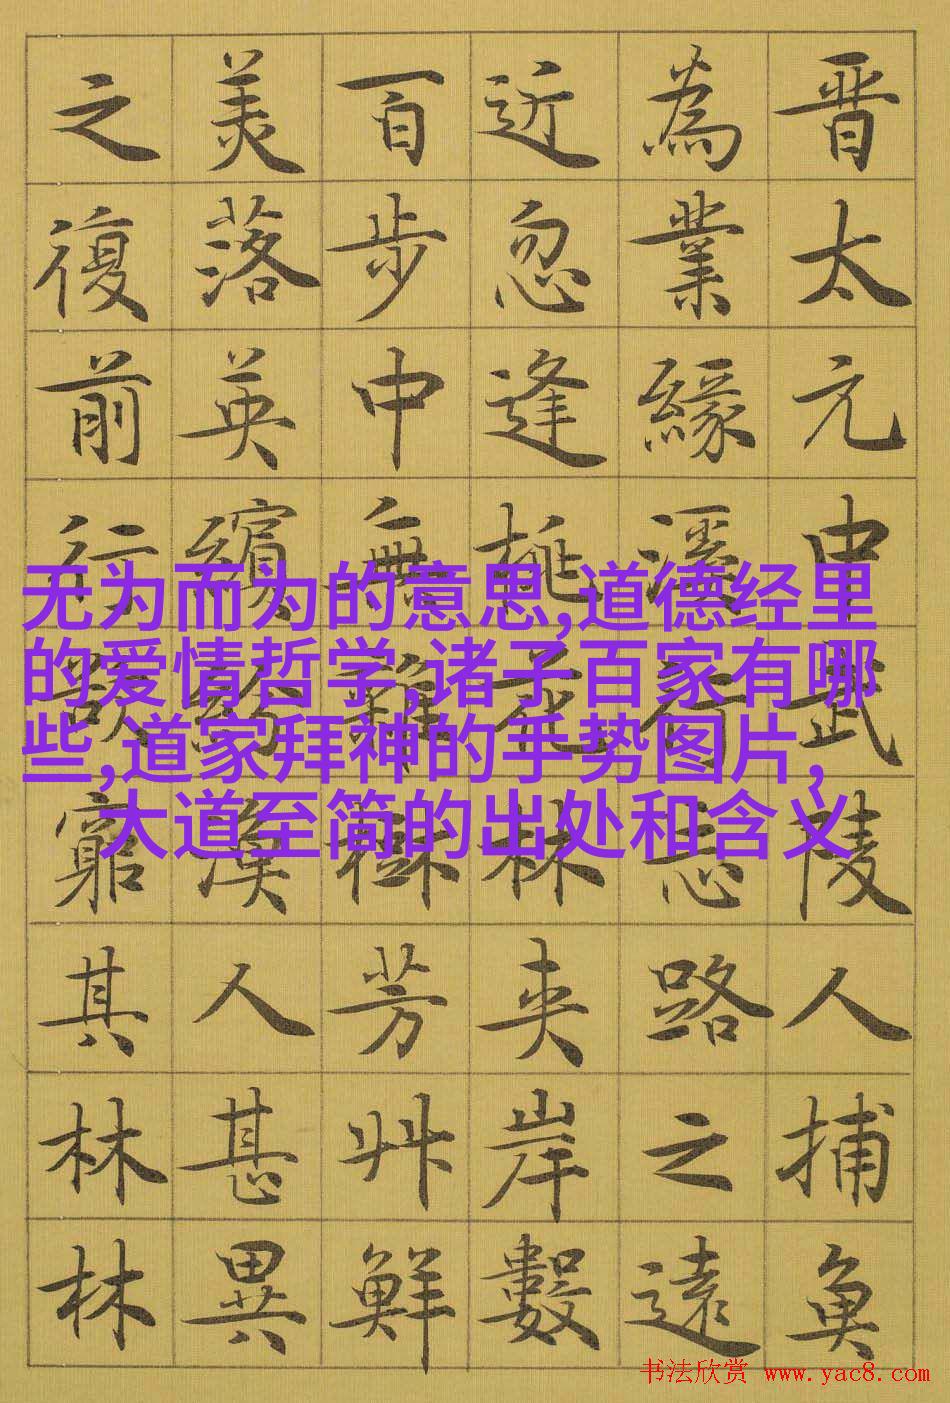 晋太元中武陵人捕魚
為業緣溪行忘路之遠
近忽逢桃花林夾岸數
百步中無雜樹芳艸鮮
美落英繽紛漁人甚異
之復前行欲窮其林林
无为而为的意思,道德经里
的爱情哲学,诸子百家有哪
些,道家拜神的手势图片,
大道至简的出处和含义
书法欣赏 www.yac8.com